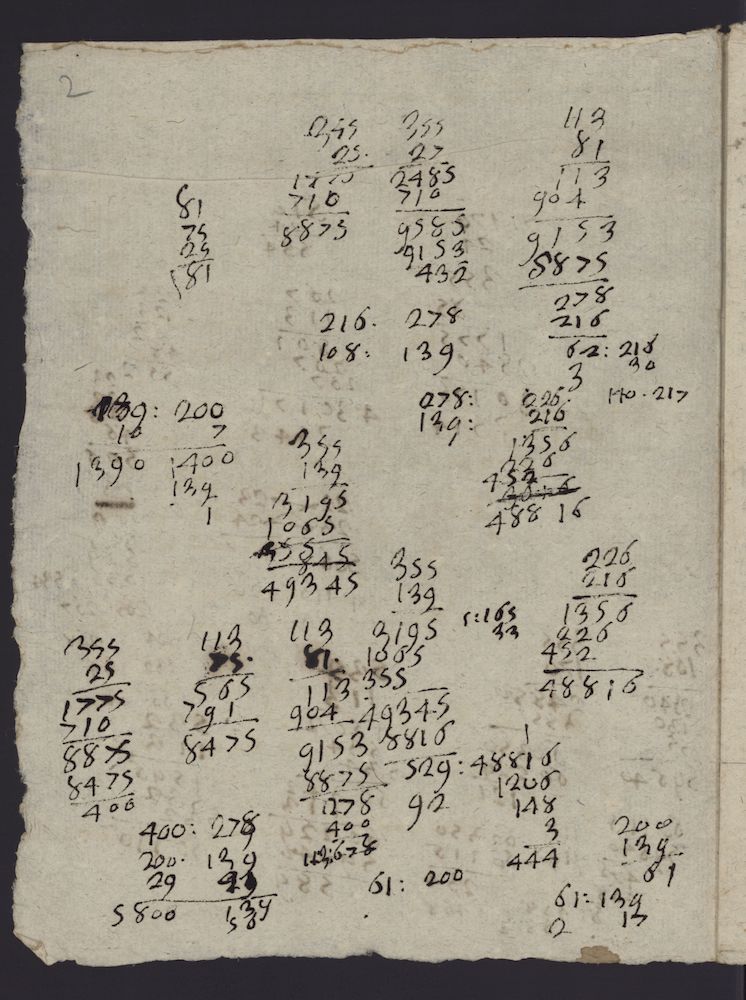 2
355
25.
1775
710
8875
355
27
2485
710
9585
9153
432
113
81
113
904
9153
8875
278
216
62: 216
3 30
81
75
25
181
216. 278
108: 139
110. 217
139: 200
10 7
1390 1400
139
1
278:
139:
226.
216
1356
226
452
48816
355
139
3195
1065
355
49345
226
216
1356
226
452
48816
355
139
3195
1065
355
49345
8816
529: 48816
92
5:165
33
355
25
1775
710
8875
8475
400
113
75.
565
791
8475
113
81.
113
904
9153
8875
278
400
678
1
1206
148
3
444
400: 278
200. 139
29
5800
61: 200
200
139
61
61: 139
2 13